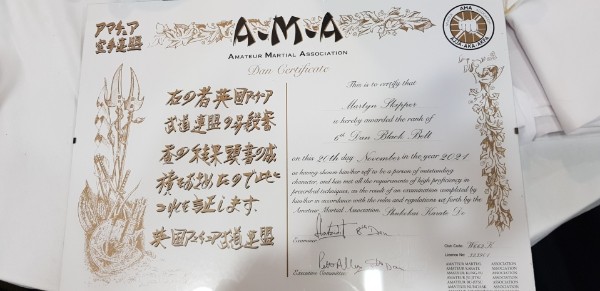 アマチュア
空手連盟
A·M·A
AMATEUR MARTIAL ASSOCIATION
Dan Certificate
AMA
右の者英国アマチュア
武道連盟の昇段審
査の結果頭書の成
これを証します。
英国アマチュア武道連盟
This is to certify that
Martyn Skipper
is hereby awarded the rank of
6th Dan Black Belt
on this 20th day November in the year 2021
as having shown him/her self to be a person of outstanding
character, and has met all the requirements of high proficiency in
prescribed techniques, as the result of an examination completed by
him/her in accordance with the rules and regulations set forth by the
Amateur Martial Association. Shukokai Karate Do
Examiner
8th Dan
Executive Committee
Club Code:
License No:
AMATEUR MARTIAL ASSOCIATION
AMATEUR KARATE ASSOCIATION
ASSOCIATION
ASSOCIATION
ASSOCIATION
ASSOCIATION